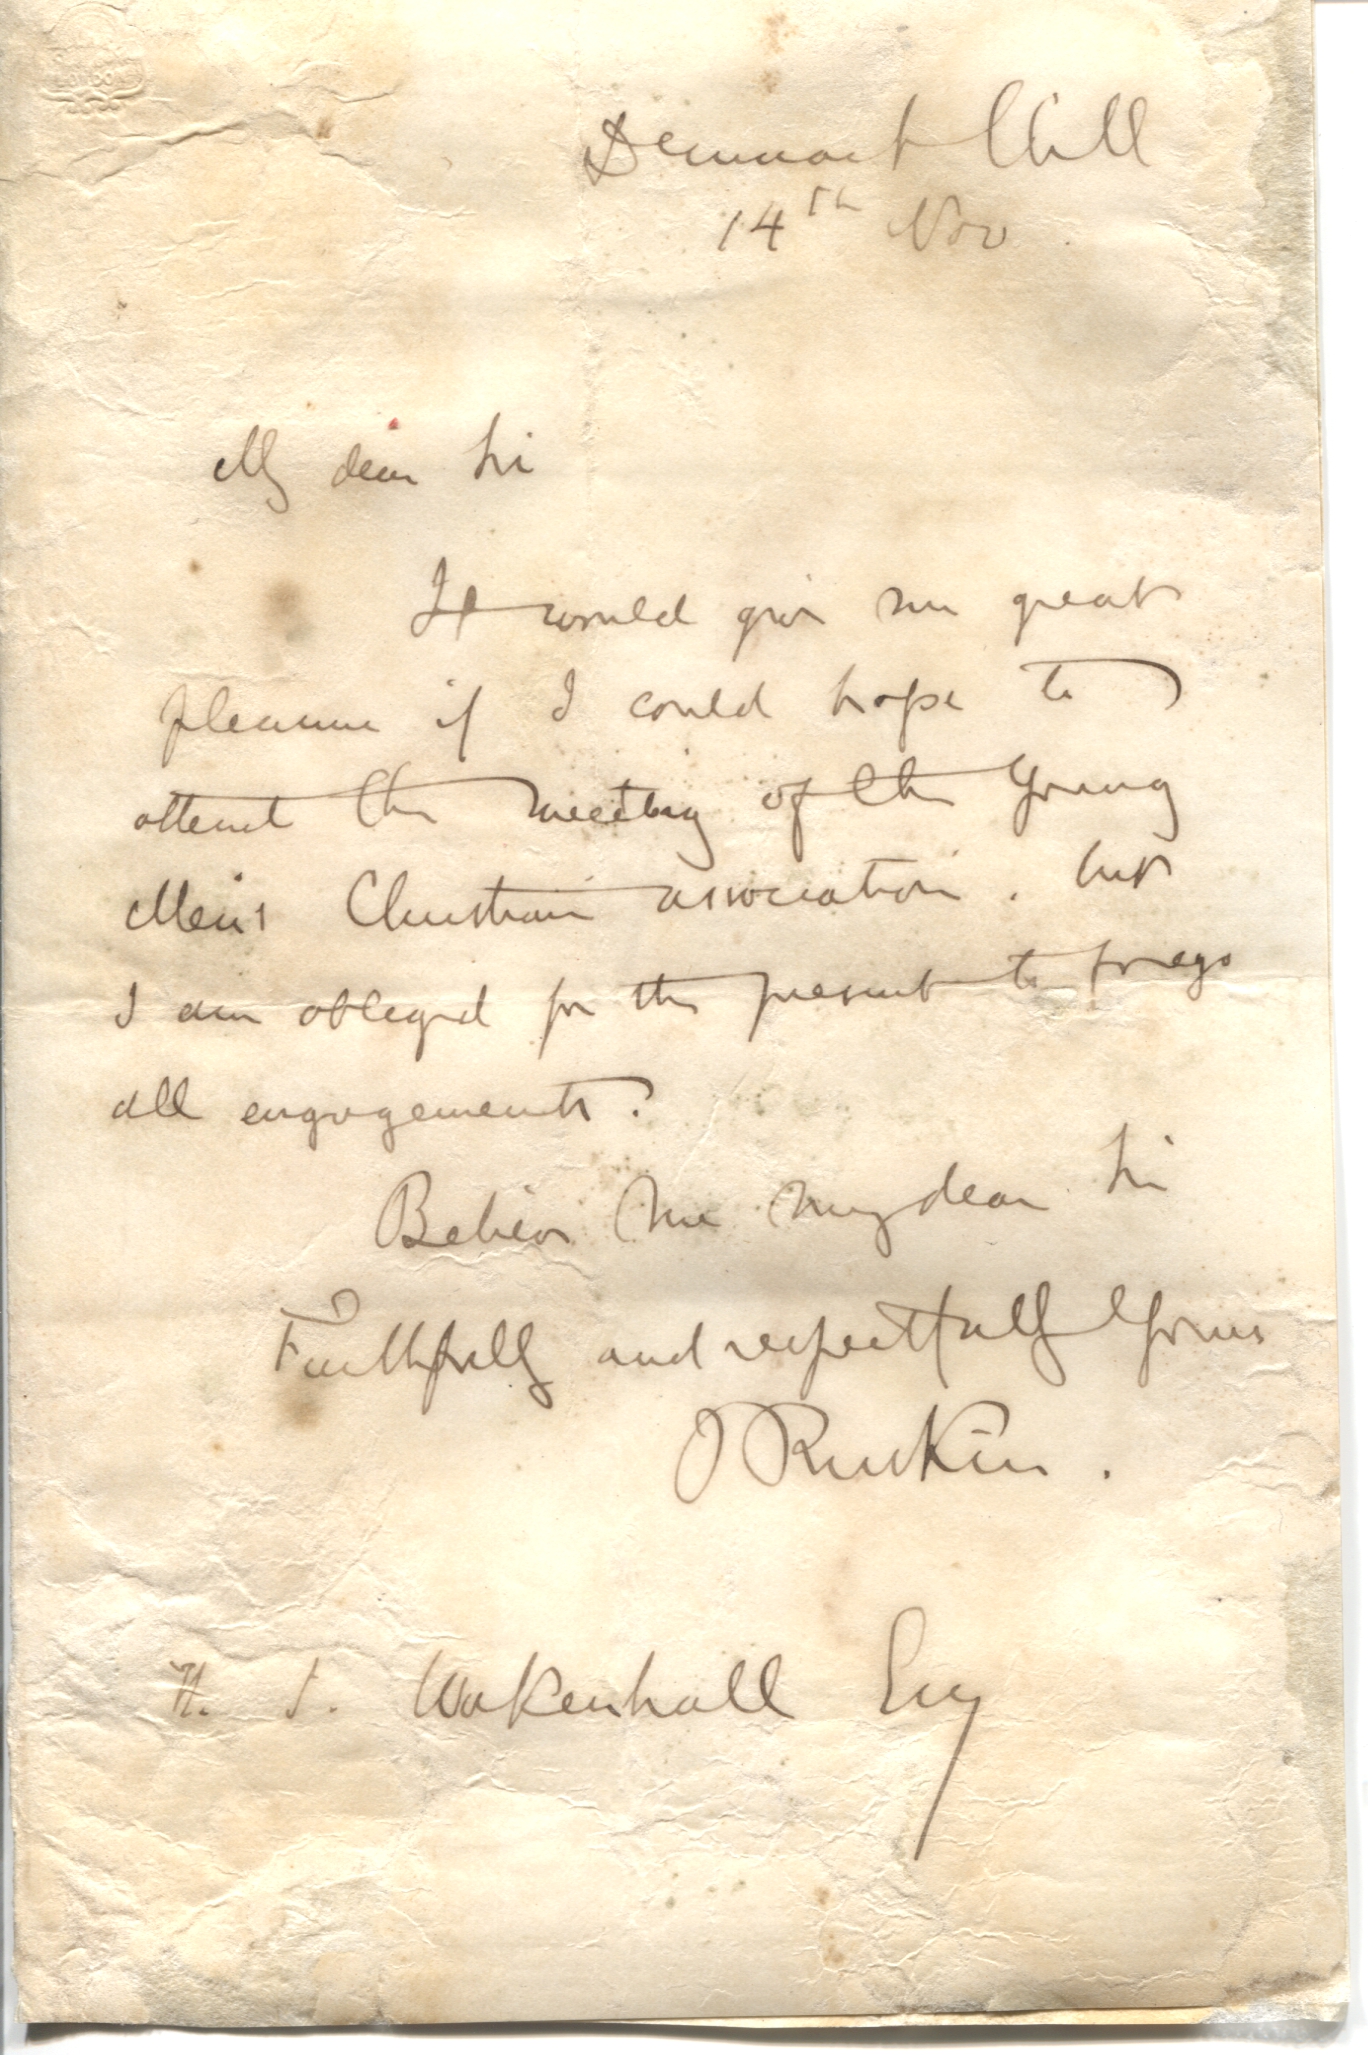 LONDON
Denmark Hill
14th Nov
My dear Sir
It would give me great
pleasure if I could hope to
attend the meeting of the Young
Men's Christian association. but
I am obliged for the present to forego
all engagements.
Believe me my dear Sir
Faithfully and respectfully Yours
J Ruskin.
H. J. Wakenhall Esq